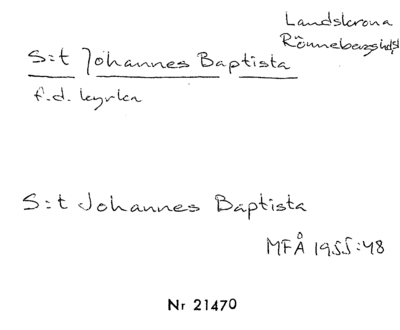 Landskrona
Rönnebergs hd
S:t Johannes Baptista
f.d. kyrka
S:t Johannes Baptista
MFÅ 1955:48
Nr 21470